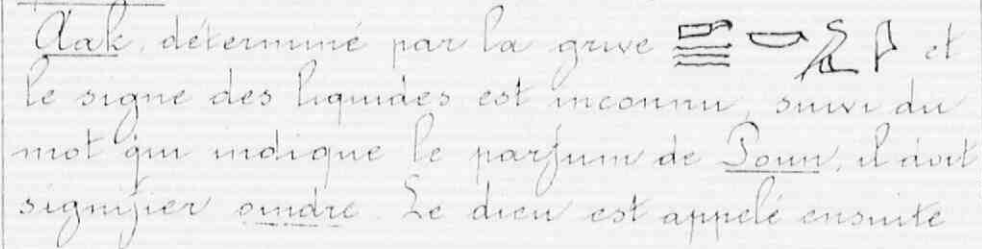 Aak, déterminé par la grue et
le signe des liquides est inconnu, suivi du
mot qui indique le parfum de Poun, il doit
signifier oindre. Le dieu est appelé ensuite